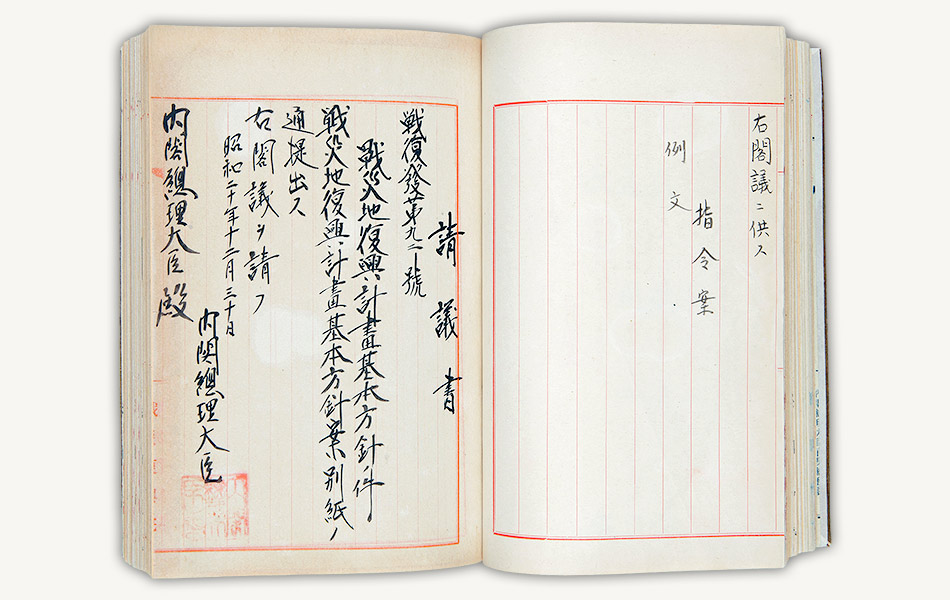 右閣議ニ供ス
指令案
例文
請議書
戦復發第九二號
戰災地復興計畫基本方針ノ件
戰災地復興計畫基本方針案別紙ノ
通提出ス
右閣議ヲ請フ
昭和二十年十二月三十日
内閣總理大臣
内閣總理大臣殿